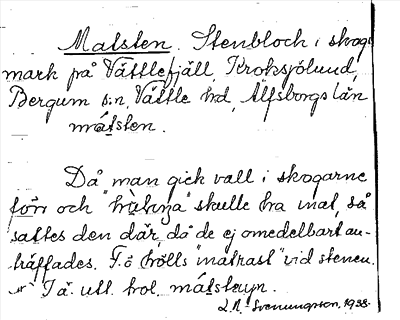 Matsten. Stenblock i skogs
mark på Vättlefjäll, Kroksjölund,
Bergum s:n, Vättle hd, Älfsborgs län
matsten.
Då man gick vall i skogarne
förr och skulle ha mat, så
sattes den där, då de ej omedelbart an-
träffades. F.ö hölls "matrast" vid stenen.
I ä. utt. hol.
Svenungsson, 1933.